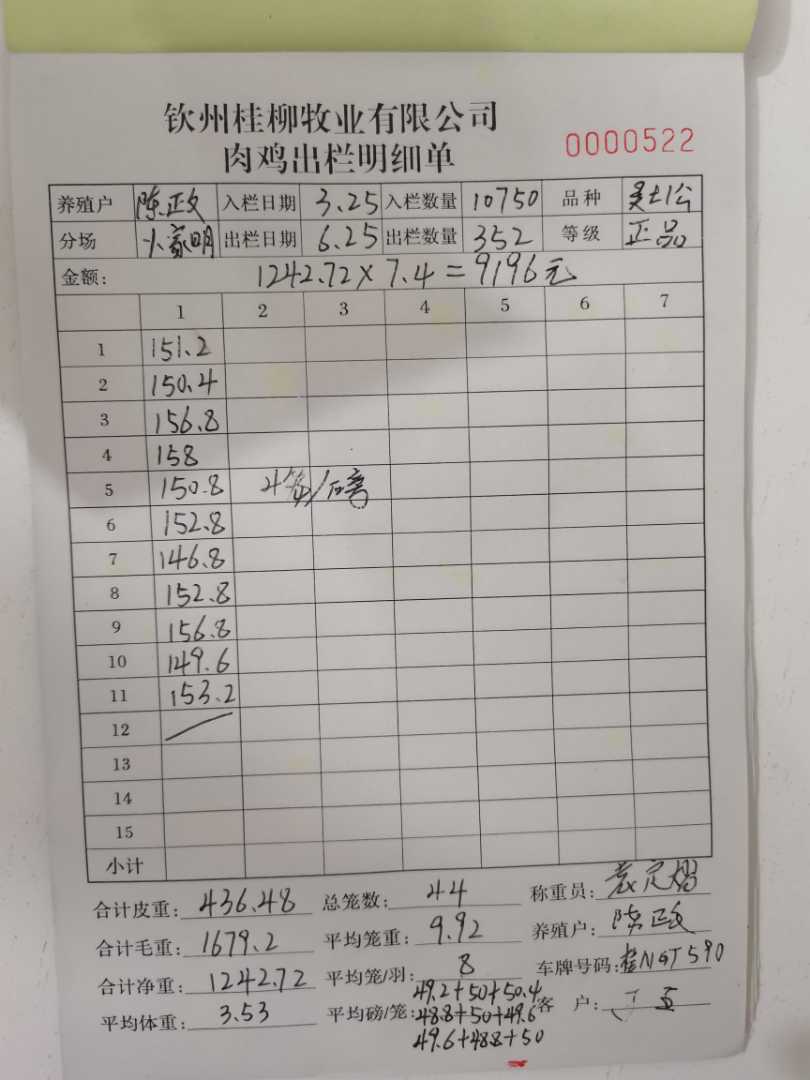 钦州桂柳牧业有限公司
肉鸡出栏明细单 0000522
养殖户 陈政 入栏日期 3.25 入栏数量 10750 品种
分场 出栏日期 6.25 出栏数量 352 等级 正品
金额: 1242.72×7.4=9196元
1 2 3 4 5 6 7
1 151.2
2 150.4
3 156.8
4 158
5 150.8 4笼/磅
6 152.8
7 146.8
8 152.8
9 156.8
10 149.6
11 153.2
12
13
14
15
小计
合计皮重: 436.48 总笼数: 44 称重员: 袁定
合计毛重: 1679.2 平均笼重: 9.92 养殖户: 陈政
合计净重: 1242.72 平均笼/羽: 8 车牌号码: 桂NGT590
平均体重: 3.53 平均磅/笼: 49.2+50+50.4 客 户:
48.8+50+49.6
49.6+48.8+50